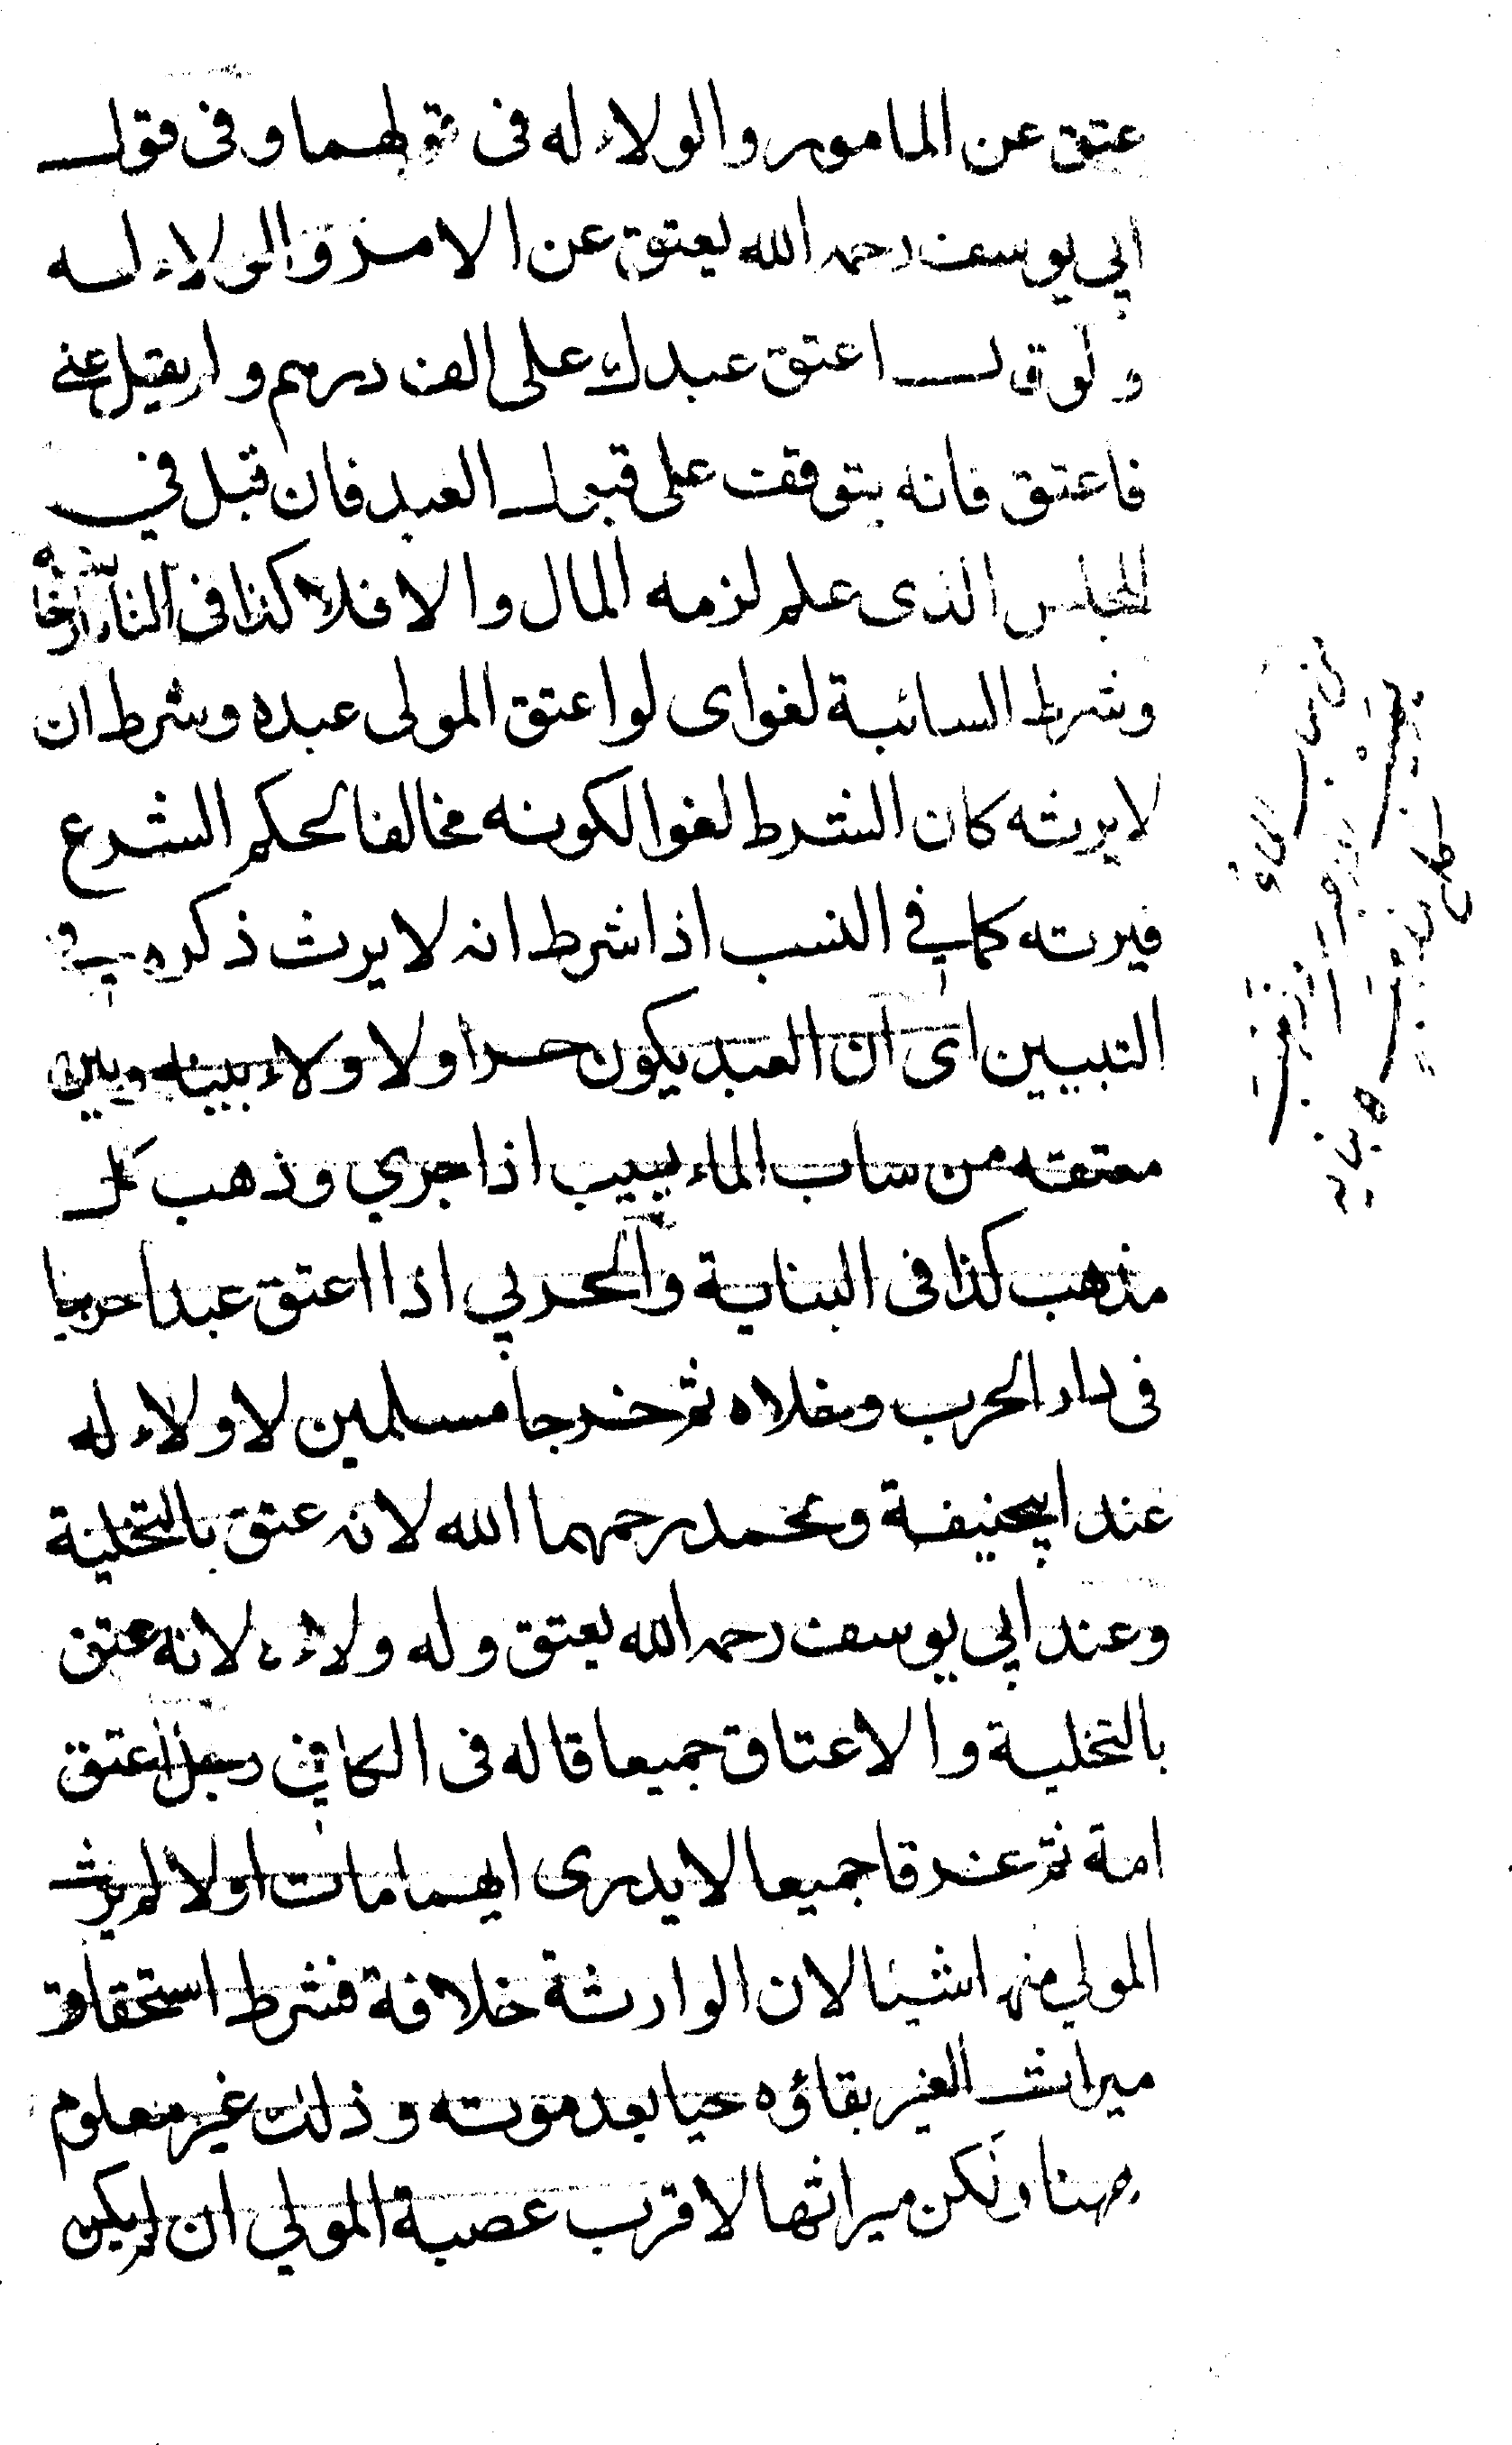 عتق عن المامور والولاء له فى قولهما وفى قول
ابي يوسف رحمه الله يعتق عن الامر والولاء له
ولو قال اعتق عبدك على الف درهم ولم يقيل عني
فاعتق فانه يتوقف على قبول العبد فان قبل في
المجلس الذى علم لزمه المال والا فلا كذا فى التاتارخا
وشرط السائبة لغو اى لو اعتق المولى عبده وشرط ان
لا يرثه كان الشرط لغوا لكونه مخالفا لحكم الشرع
فيرثه كما في النسب اذا شرط انه لا يرث ذكره في
التبيين اى ان العبد يكون حرا ولا ولاء بينه وبين
معتقه من ساب الماء يسيب اذا جري وذهب كل
مذهب كذا فى البناية والحربي اذا اعتق عبدا حربيا
فى دار الحرب وخلاه ثم خرجا مسلمين لا ولاء له
عند ابيحنيفة ومحمد رحمهما الله لانه عتق بالتخلية
وعند ابي يوسف رحمه الله يعتق وله ولاءه لانه عتق
بالتخلية والاعتاق جميعا قاله فى الكافي رجل اعتق
امة ثم غرقا جميعا لا يدرى ايهما مات اولا لم يرث
المولي منها شيئا لان الوارثة خلافة فشرط استحقاق
ميراث الغير بقاؤه حيا بعد موته وذلك غير معلوم
ههنا ولكن ميراثها لاقرب عصبة المولي ان لم يكن